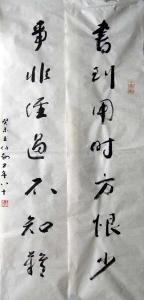 書到用时方恨少
事非經過不知難
癸未王伯敏年八十